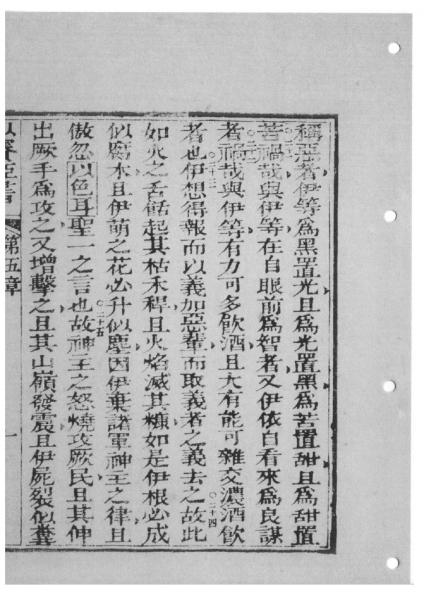 稱惡者伊等爲黑置光且爲光置黑爲苦置甜且爲甜置
苦禍哉與伊等在自眼前爲智者又伊依自看來爲良謀
者禍哉與伊等有力可多飲酒且大有能可雜交濃酒飲
○二十三
者也伊想得報而以義加惡輩而取義者之義去之故此
○二十四
如火之舌餂起其枯禾稈且火焰滅其類如是伊根必成
似腐木且伊萌之花必升似塵因伊棄諸軍神王之律且
○二十五
傲忽以色耳聖一之言也故神王之怒燒攻厥民且其伸
出厥手爲攻之又增擊之且其山嶺發震且伊屍裂似糞
以賽亞書 第五章 一